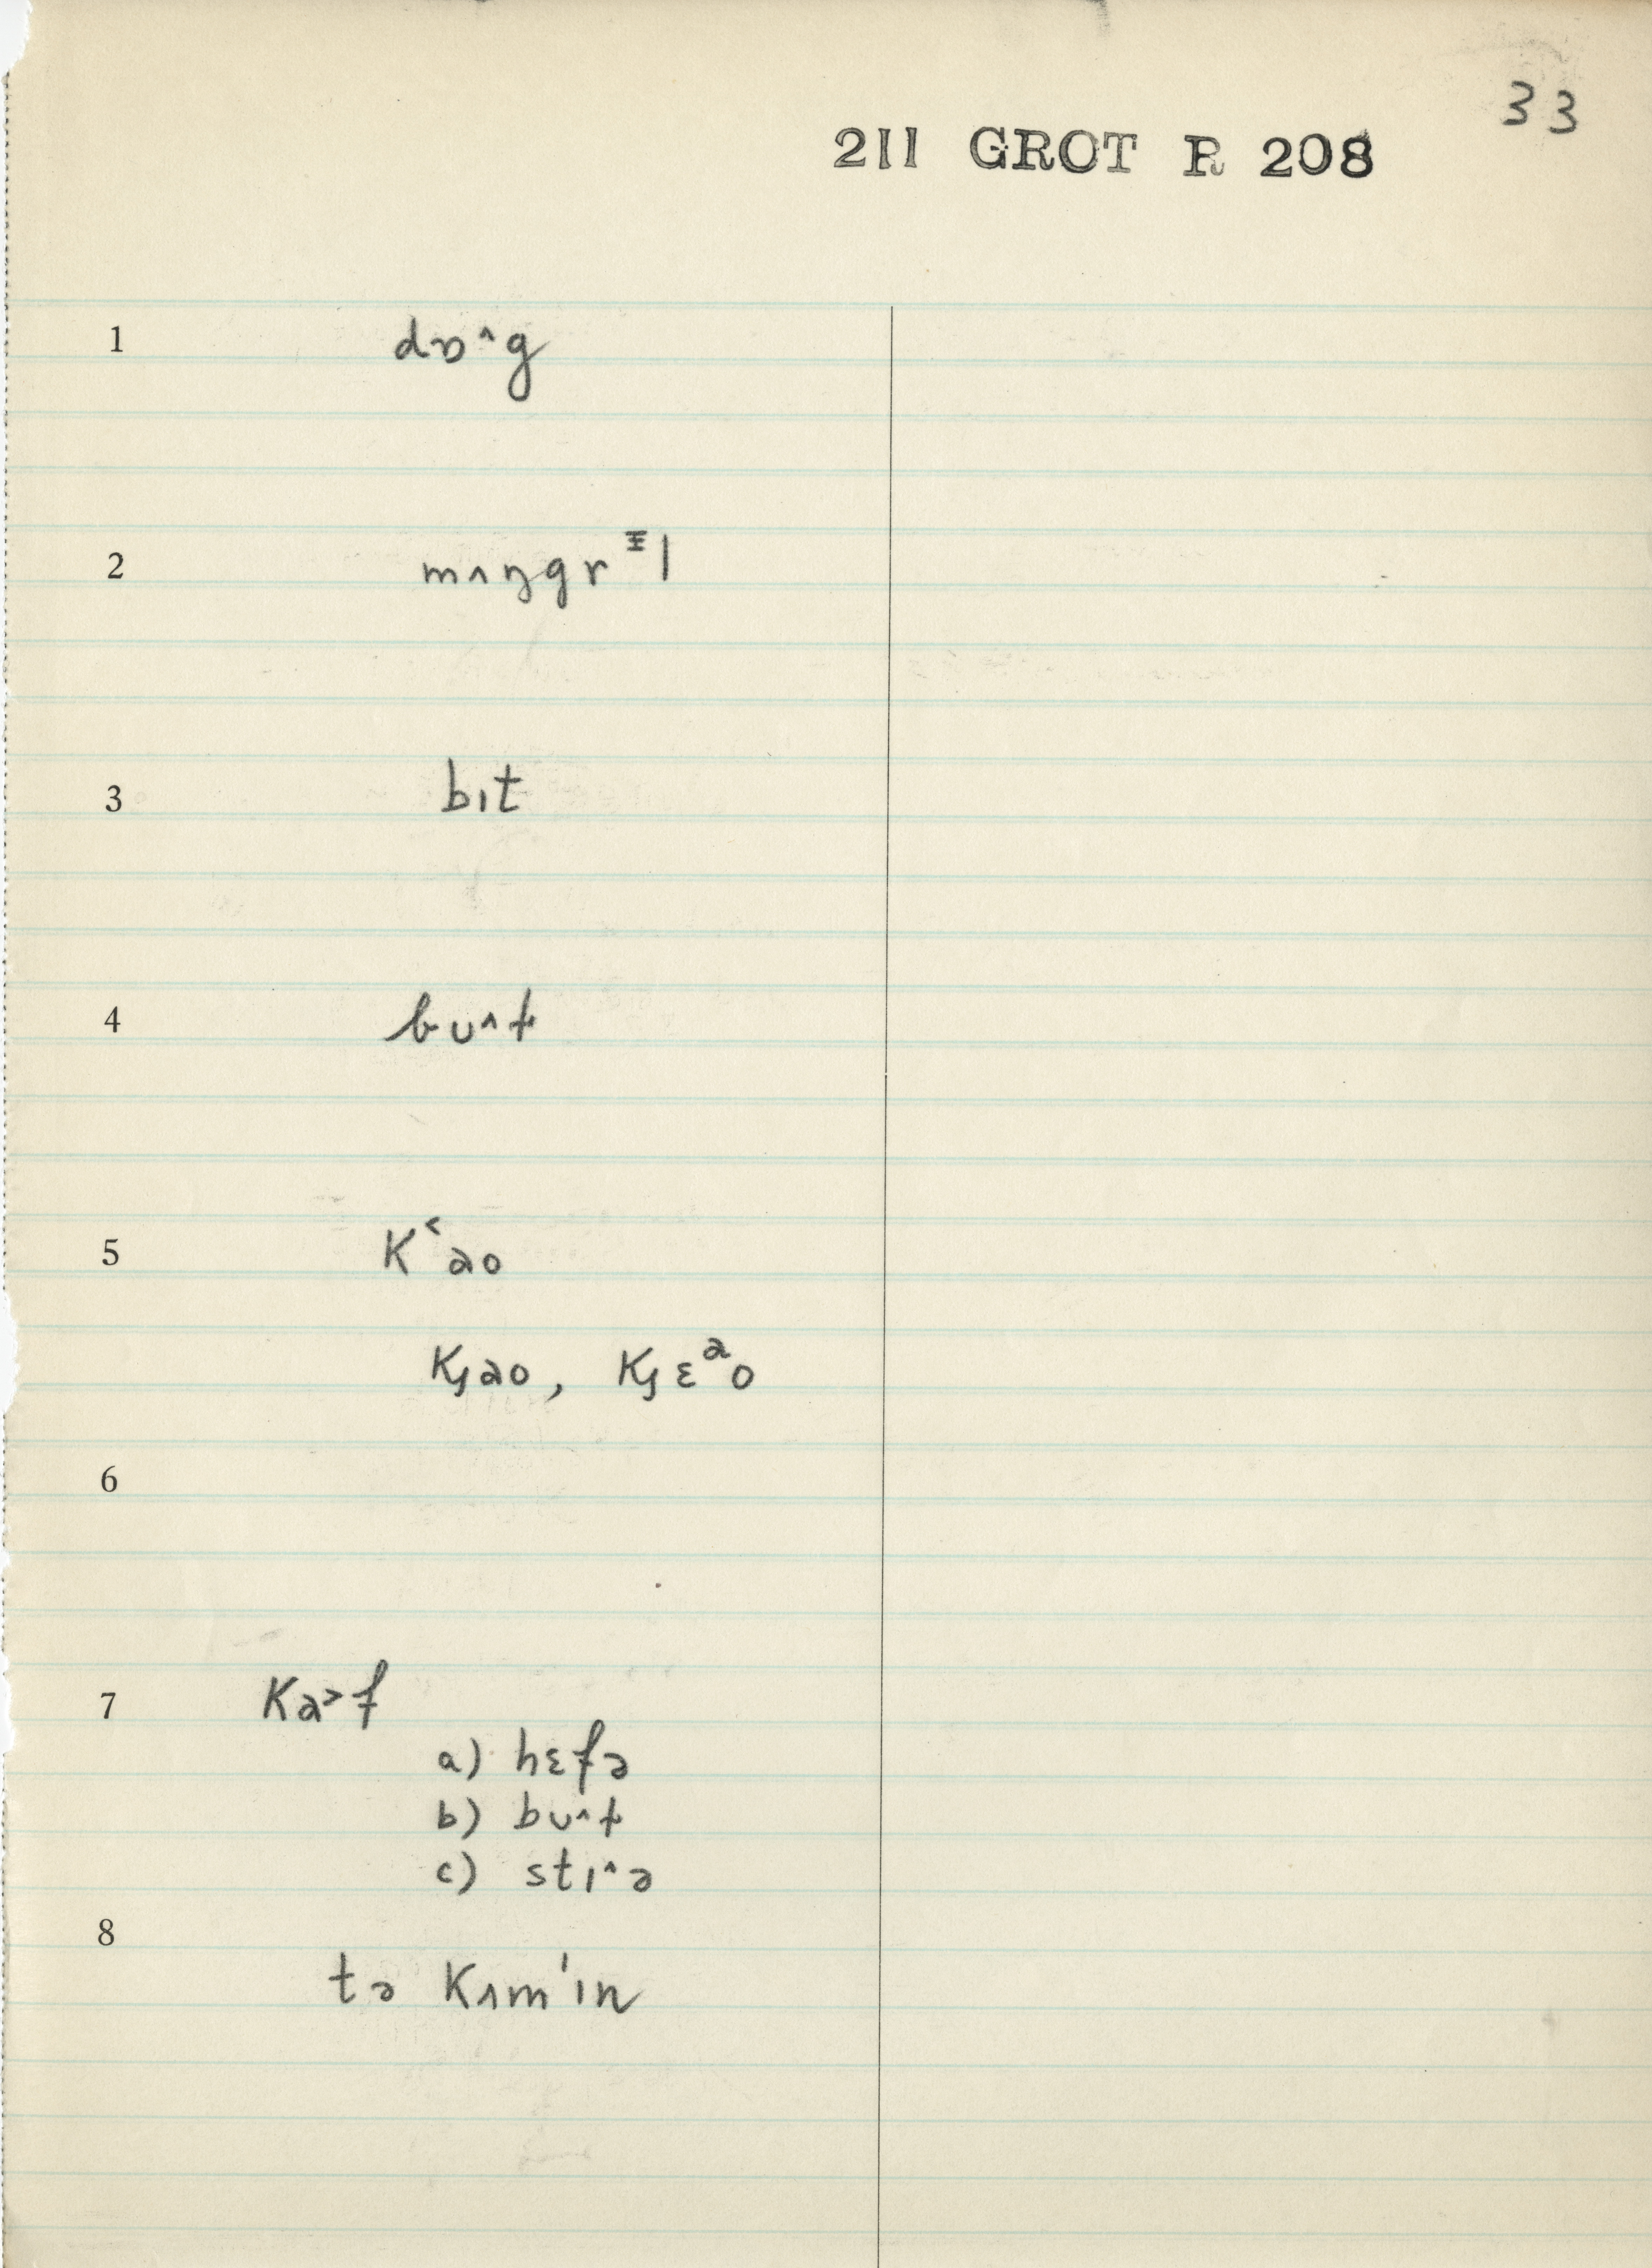 33
211 GROT R 208
1 dɒ^g
2 mʌŋgrᵻl
3 bɪt
4 bʊ^ɫ
5 K˂ao
Kȷao, Kȷɛᵃo
6
7 Ka˃f
a) hɛfə
b) bʊ^ɫ
c) stɪ^ə
8
tə Kʌm'ɪn